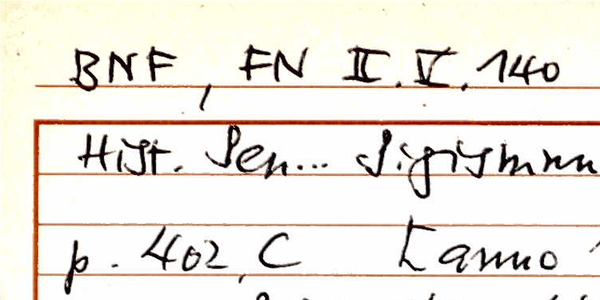 BNF, FN II.V.140
Hist. Sen... Sigismun
p. 402, C Lanno